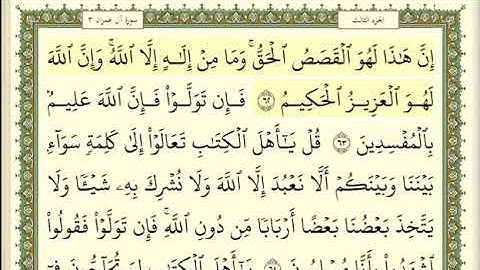 سورة آل عمران ٣ الجزء الثالث
إِنَّ هَٰذَا لَهُوَ ٱلْقَصَصُ ٱلْحَقُّ ۚ وَمَا مِنْ إِلَٰهٍ إِلَّا ٱللَّهُ ۚ وَإِنَّ ٱللَّهَ
لَهُوَ ٱلْعَزِيزُ ٱلْحَكِيمُ ٦٢ فَإِن تَوَلَّوْا۟ فَإِنَّ ٱللَّهَ عَلِيمٌۢ
بِٱلْمُفْسِدِينَ ٦٣ قُلْ يَٰٓأَهْلَ ٱلْكِتَٰبِ تَعَالَوْا۟ إِلَىٰ كَلِمَةٍ سَوَآءٍۭ
بَيْنَنَا وَبَيْنَكُمْ أَلَّا نَعْبُدَ إِلَّا ٱللَّهَ وَلَا نُشْرِكَ بِهِۦ شَيْـًٔا وَلَا
يَتَّخِذَ بَعْضُنَا بَعْضًا أَرْبَابًا مِّن دُونِ ٱللَّهِ ۚ فَإِن تَوَلَّوْا۟ فَقُولُوا۟